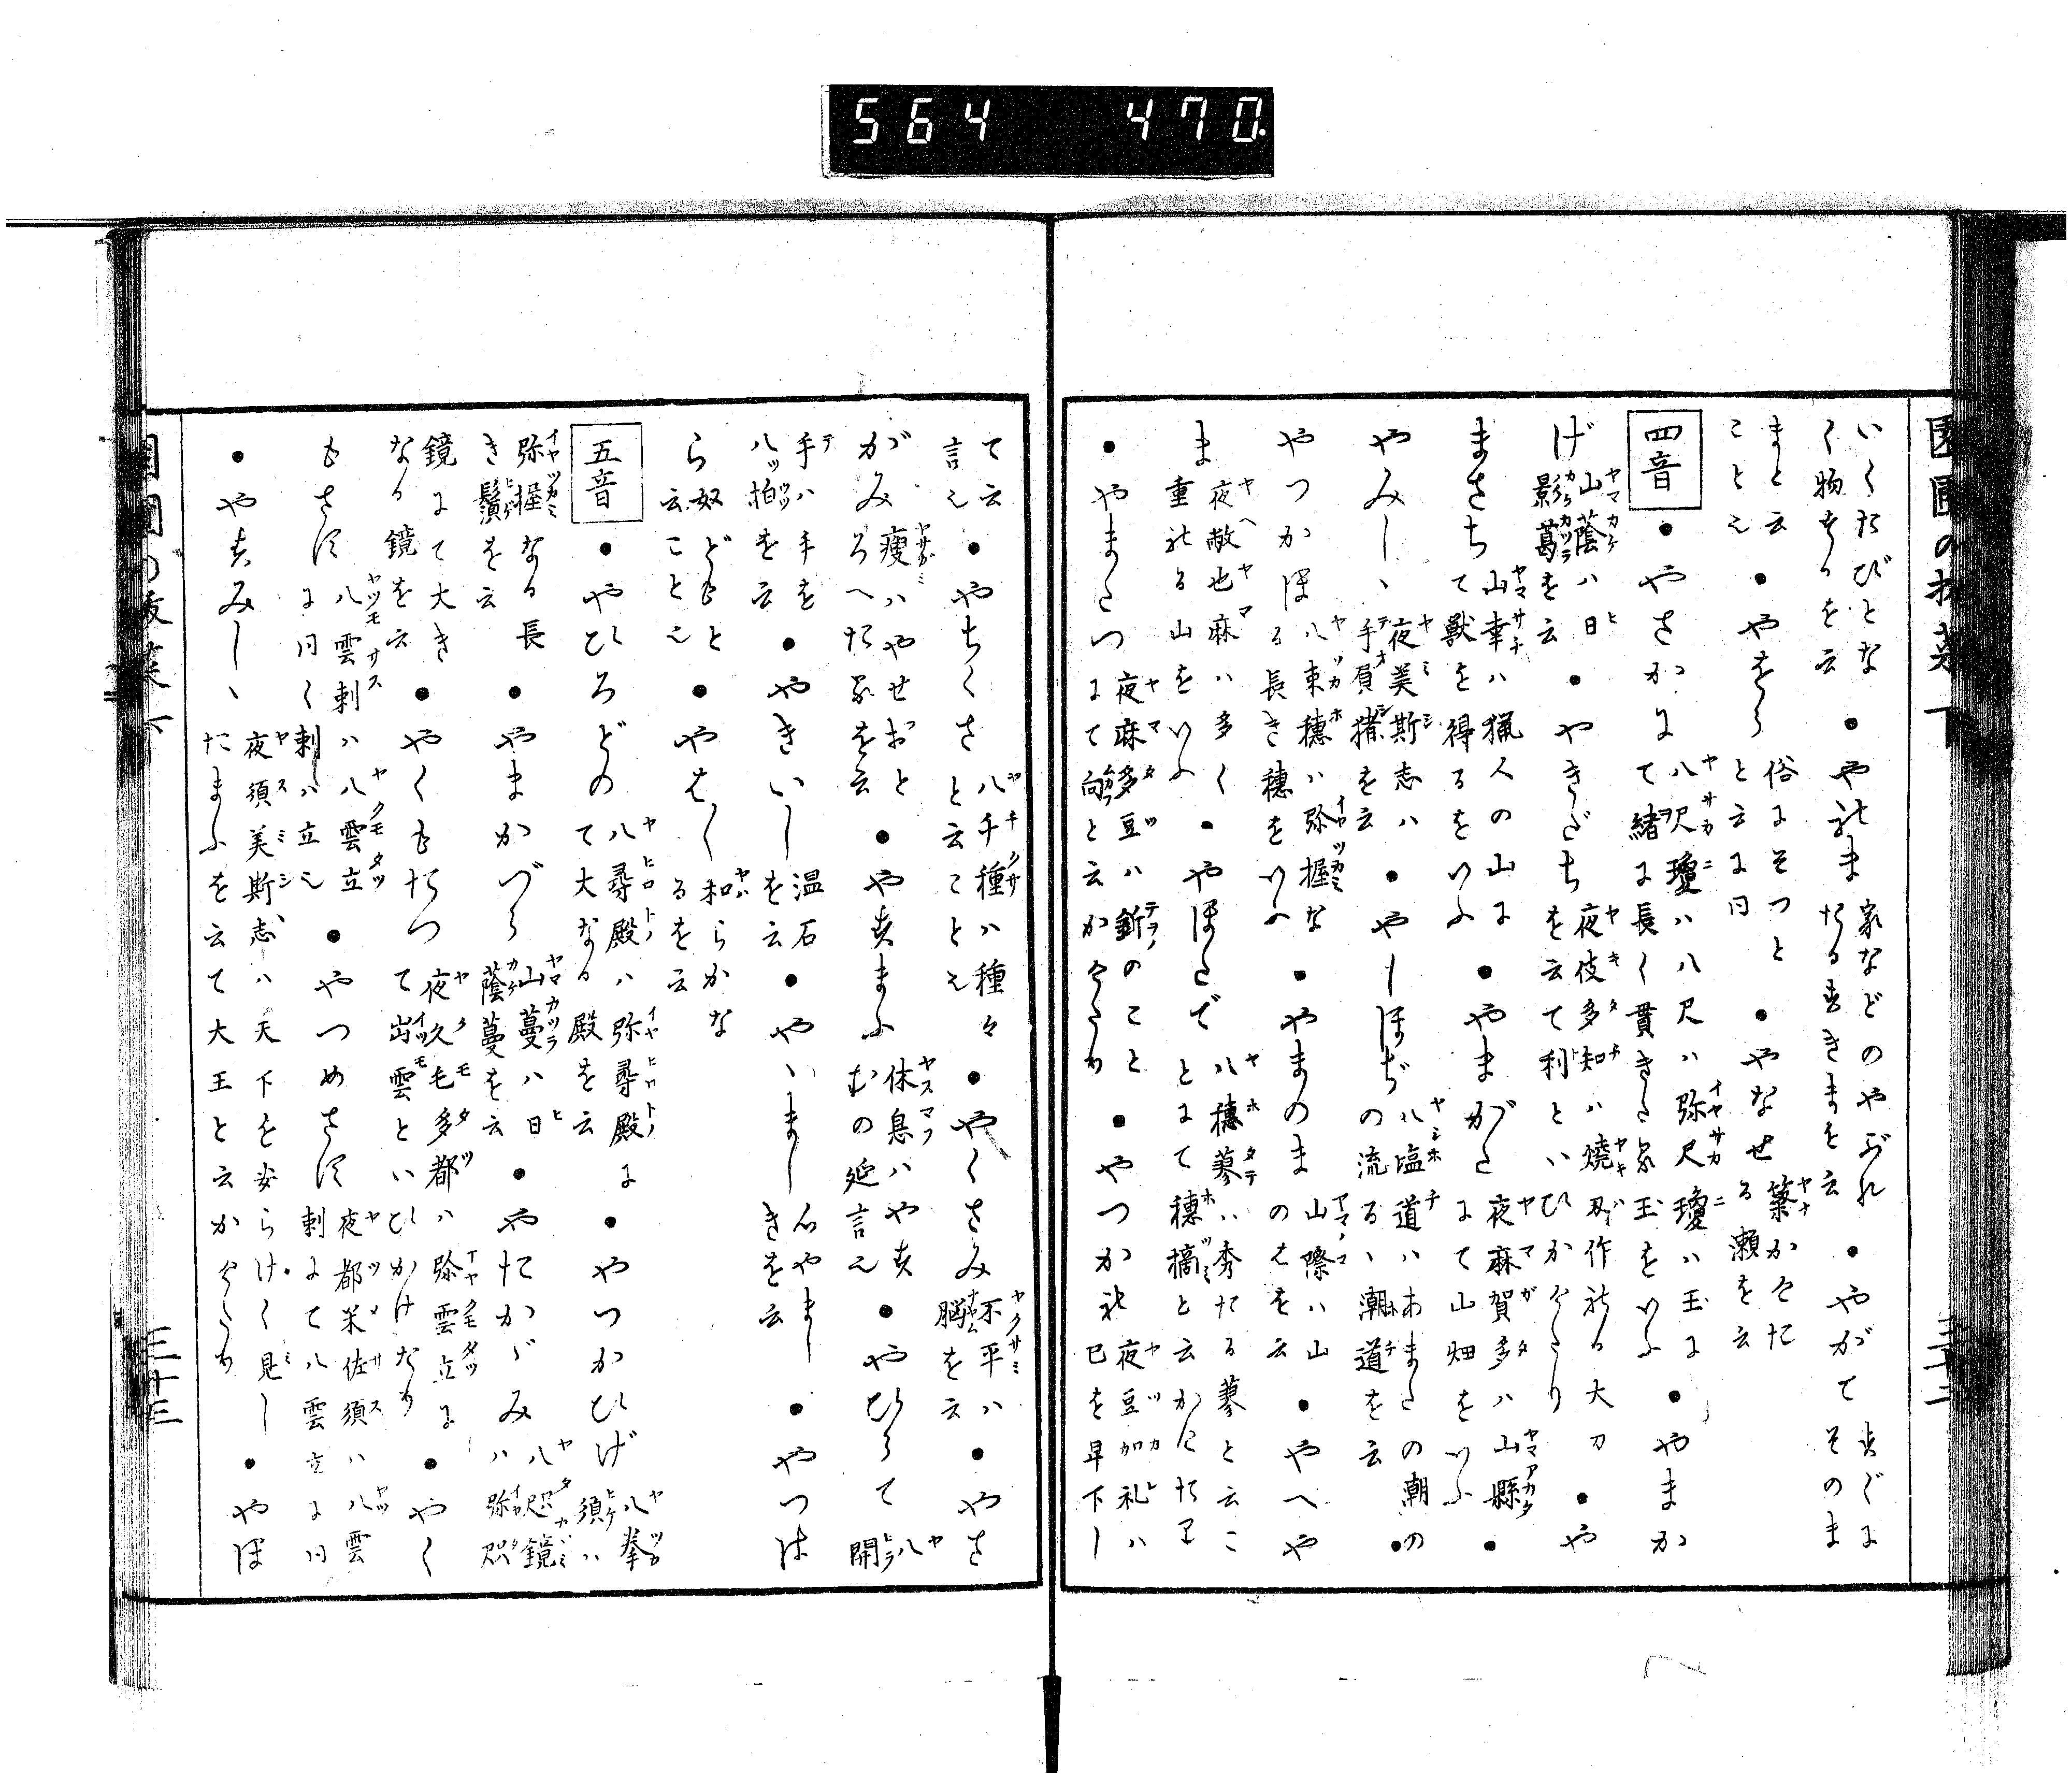 564 470
いくたびとな
く物するを云
●やれま
家などのやぶれ
たるすきまを云
●やがて
すぐに
そのま
まと云
ことゝ
●やをら
俗にそつと
と云に同
●やなせ
簗かけた
る瀬を云
四音
●やさかに
八尺瓊ハ八尺ハ弥尺瓊ハ玉に
て緒に長く貫きたる玉をいふ
●やまか
げ
山蔭ハ日
影葛を云
●やきだち
夜伎多知ハ焼刃作れる大刀
を云て利といひかけたり
●や
まさち
山幸ハ猟人の山に
て獣を得るをいふ
●やまがた
夜麻賀多ハ山縣
にて山畑をいふ
●
やみしゝ
夜美斯志ハ
手負猪を云
●やしほぢ
八塩道ハあまたの潮の
の流るゝ潮道を云
●
やつかほ
八束穗ハ弥握な
る長き穂をいふ
●やまのま
山際ハ山
のまを云
●やへや
ま
夜敝也麻ハ多く
重れる山をいふ
●やほたで
八穗蓼ハ秀たる蓼と云こ
とにて穗摘と云かけたり
●やまたつ
夜麻多豆ハ釿のこと
にて向と云かけたり
●やつかれ
夜豆加礼ハ
己を早下し
て云
言え
●やちくさ
八千種ハ種々
と云ことゝ
●やくさみ
不平ハ
脳を云
●やさ
がみ
瘦ハやせおと
ろへたるを云
●やすまふ
休息ハやす
むの延言え
●やひらて
八
開
手ハ手を
八ッ拍を云
●やきいし
温石
を云
●やゝまし
心やまし
きを云
●やつは
ら
奴どもと
云ことゝ
●やはし
和らかな
るを云
五音
●やひろどの
八尋殿ハ弥尋殿に
て大なる殿を云
●やつかひげ
八拳
須ハ
弥握なる長
き鬚を云
●やまかづら
山蔓ハ日
蔭蔓を云
●やたかゞみ
八咫鏡
ハ弥咫
鏡にて大き
なる鏡を云
●やくもたつ
夜久毛多都ハ弥雲立に
て出雲といひかけたり
●やく
もさす
八雲刺ハ八雲立
に同く刺ハ立え
●やつめさす
夜都米佐須ハ八雲
刺にて八雲立に同
●やすみしゝ
夜須美斯志ハ天下を安らけく見し
たまふを云て大王と云かけたり
●やほ
三十三